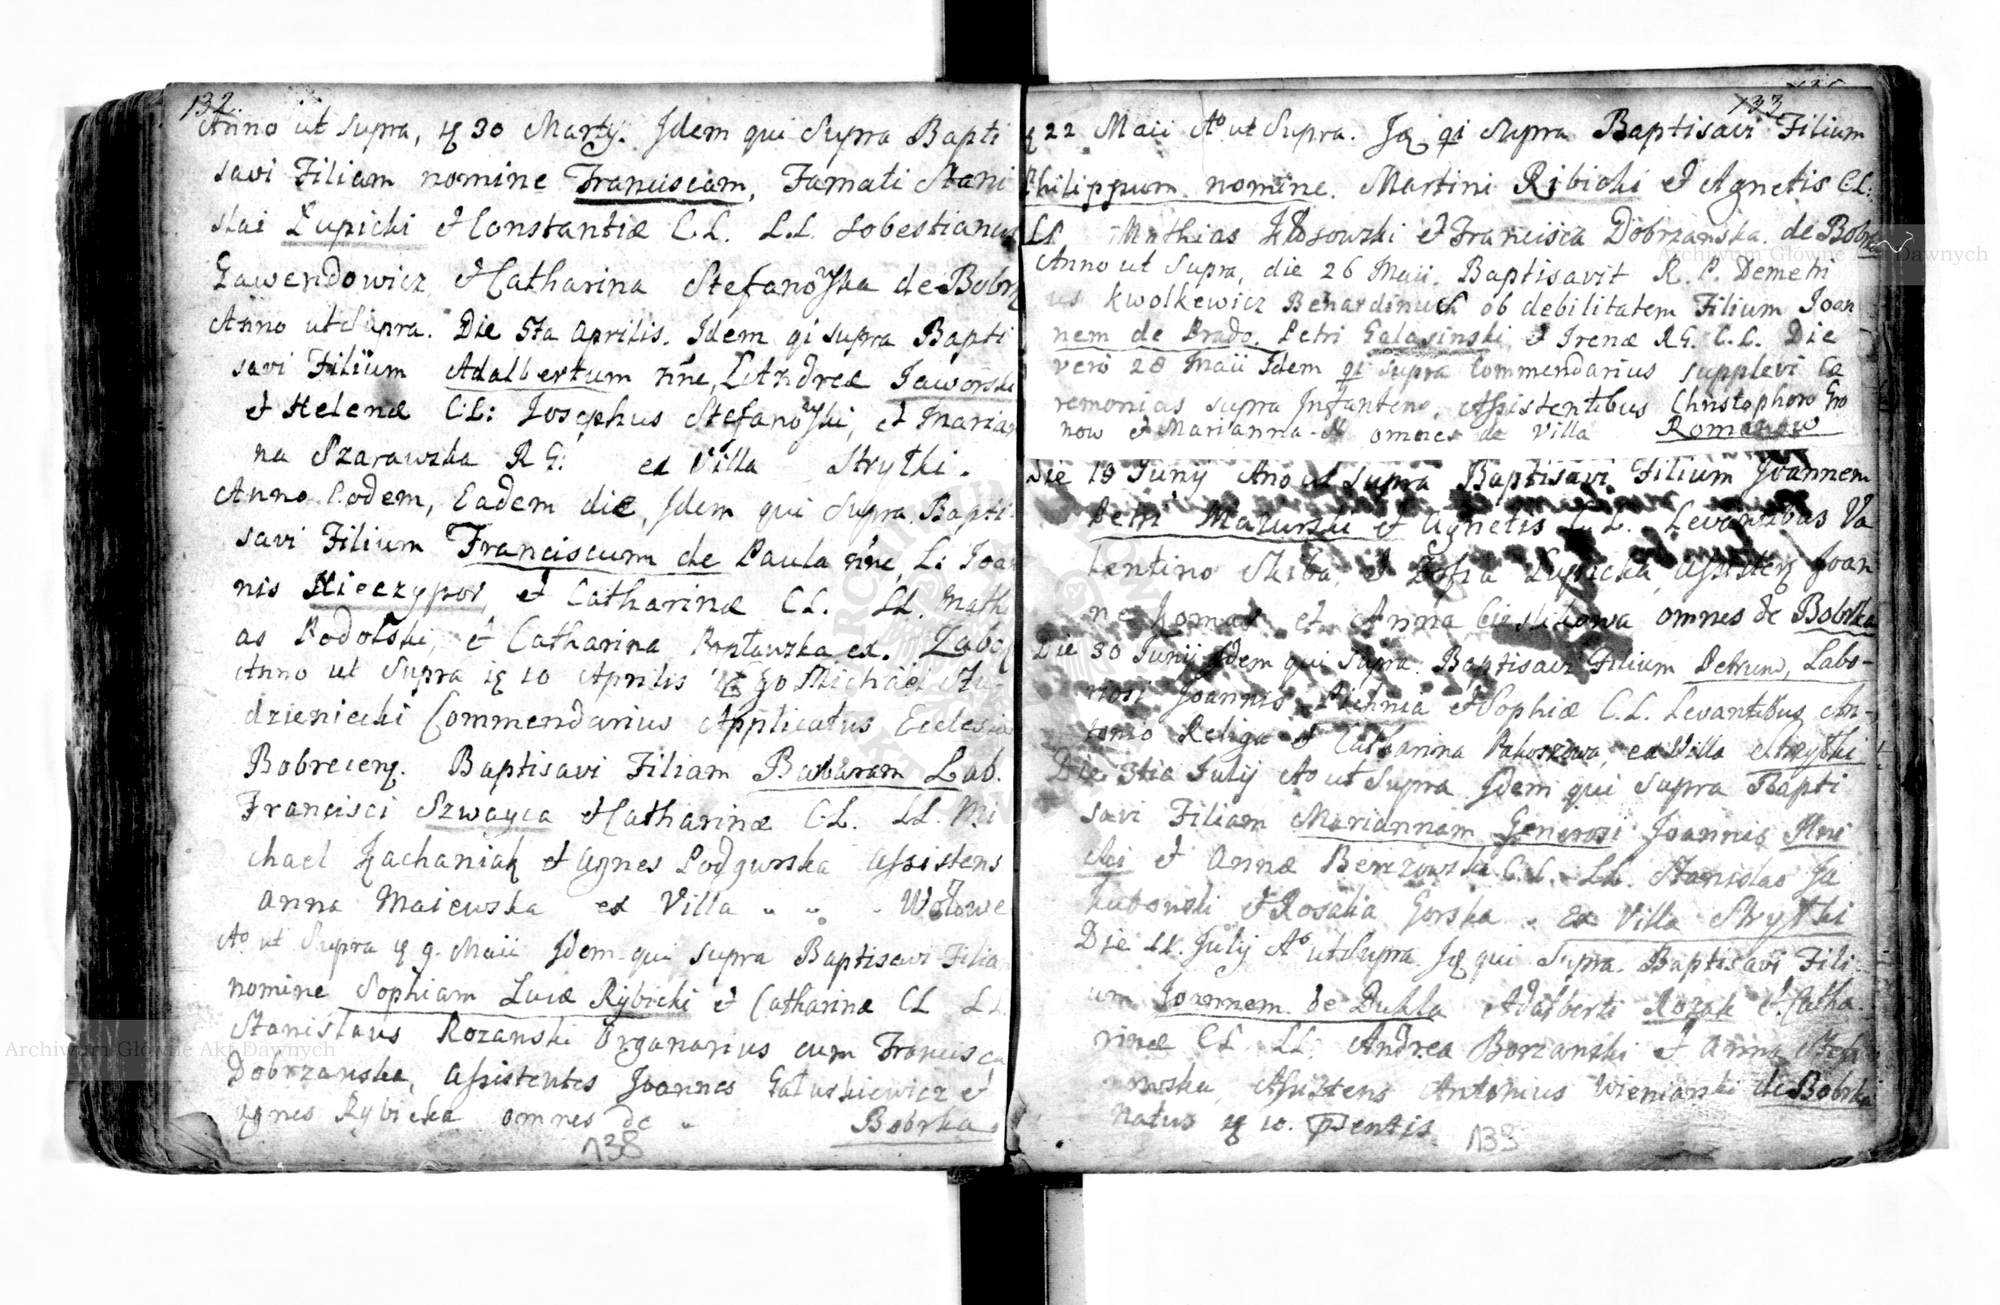 132.
Anno ut Supra, 30 Martij. Idem qui Supra Bapti
savi Filiam nomine Franciscam, Famati Stani
slai Łupicki et Constantiæ C.L. L.L. Sobestianus
Gawendowicz et Catharina Stefanowska de Bobrk
Anno ut Supra. Die 5ta Aprilis. Idem qi Supra Bapti
savi Filium Adalbertum nñe, L. Andreæ Jaworski
et Helenæ C:L: Iosephus Stefanowski, et Marian
na Szarawzka R G: ex Villa Strytki.
Anno Eodem, Eadem die, Idem qui Supra Bapti
savi Filium Franciscum de Paula nñe, L: Joan
nis Nieczypor, et Catharinæ C L. LL. Mathi
as Podolski, et Catharina ex.
Anno ut Supra 10 Aprilis Ego Michael Stu
dzieniecki Commendarius Applicatus Ecclesiæ
Bobrecen. Baptisavi Filiam Barbaram Lab.
Francisci Szwayca et Catharinæ C.L. LL. Mi
chael Kachaniak et Agnes Podgurska Assistens
Anna Maiewska ex Villa Wołowe
Ao ut Supra 9. Maii Idem qui Supra Baptisavi Filiam
nomine Sophiam Lucæ Rybicki et Catharinæ CL LL
Stanislaus Rozanski Organarius cum Francisca
Dobrzanska, Assistentes Joannes Gałuszkiewicz et
Agnes Rybicka omnes de Bobrka.
138
133
22 Maii Ao ut Supra. qi Supra Baptisavi Filium
Philippum nomine. Martini Ribicki et Agnetis C.L:
LL Mathias Kłosowzki et Francisca Dobrzanska de Bobrka
Anno ut Supra, die 26 Maii. Baptisavit R. P. Demetri
us Kwolkewicz Benardinus ob debilitatem Filium Joan
nem de Prado, Petri Galasinski et Irenæ RG. C.L. Die
vero 28 Maii Idem qi Supra Commendarius supplevi Ce
remonias supra Infantem, Assistentibus Christophoro Gro
now et Marianna omnes de Villa Romanow
Die 18 Junij Ano ut Supra Baptisavi Filium Joannem
Petri Mazurski et Agnetis C. L. Levantibus Va
lentino Skiba, et Zofia Łupicka, Assisten Joan
ne et Anna omnes de Bobrka
Die 30 Junij Idem qui Supra. Baptisavi Filium Petrum, Labo-
riosi Joannis Pichnia et Sophiæ C.L. Levantibus An-
tonio Religa et Catharina ex Villa Strzytki
Die 3tia Julij Ao ut Supra Idem qui Supra Bapti
savi Filiam Mariannam Generosi Joannis
et Annæ Berezowska C.L. LL. Stanislao Ja
kubonski et Rosalia Gorska. Ex Villa Strytki
Die 11. Julij Ao ut Supra. qui Supra Baptisavi Fili
um Joannem de Dukla Adalberti Kozak et Catha
rinæ CL. LL: Andrea Borzanski et Anna
Assistens Antonius Wieniarski de Bobrka
natus 10. Psentis.
139
Archiwum Główne Akt Dawnych
Archiwum Główne Akt Dawnych